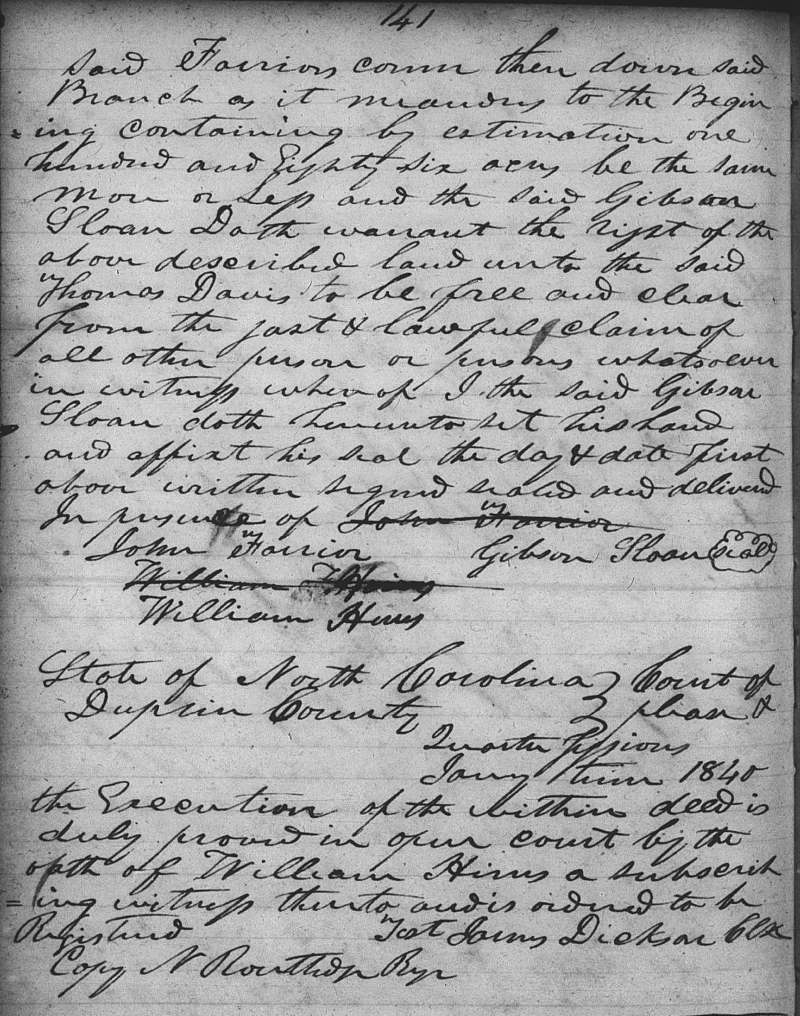 141
said Farriors corner then down said
Branch as it meanders to the Begin
=ing containing by estimation one
hundred and Eighty six acres be the same
more or Less and the said Gibson
Sloan Doth warrant the right of the
above described land unto the said
Thomas Davis to be free and clear
from the just & lawfull claim of
all other person or persons whatsoever
in witness whereof I the said Gibson
Sloan doth hereunto set his hand
and affixt his seal the day & date first
above written signed sealed and delivered
In presence of John Farrior
John Farrior Gibson Sloan (seal)
William Hines
William Hines
State of North Carolina } Court of
Duplin County } pleas &
Quarter Sessions
Jany term 1840
the Execution of the within deed is
duly proved in open court by the
oath of William Hines a subscrib
=ing witness thereto and is ordered to be
Registered Test James Dickson Clk
Copy N Regr